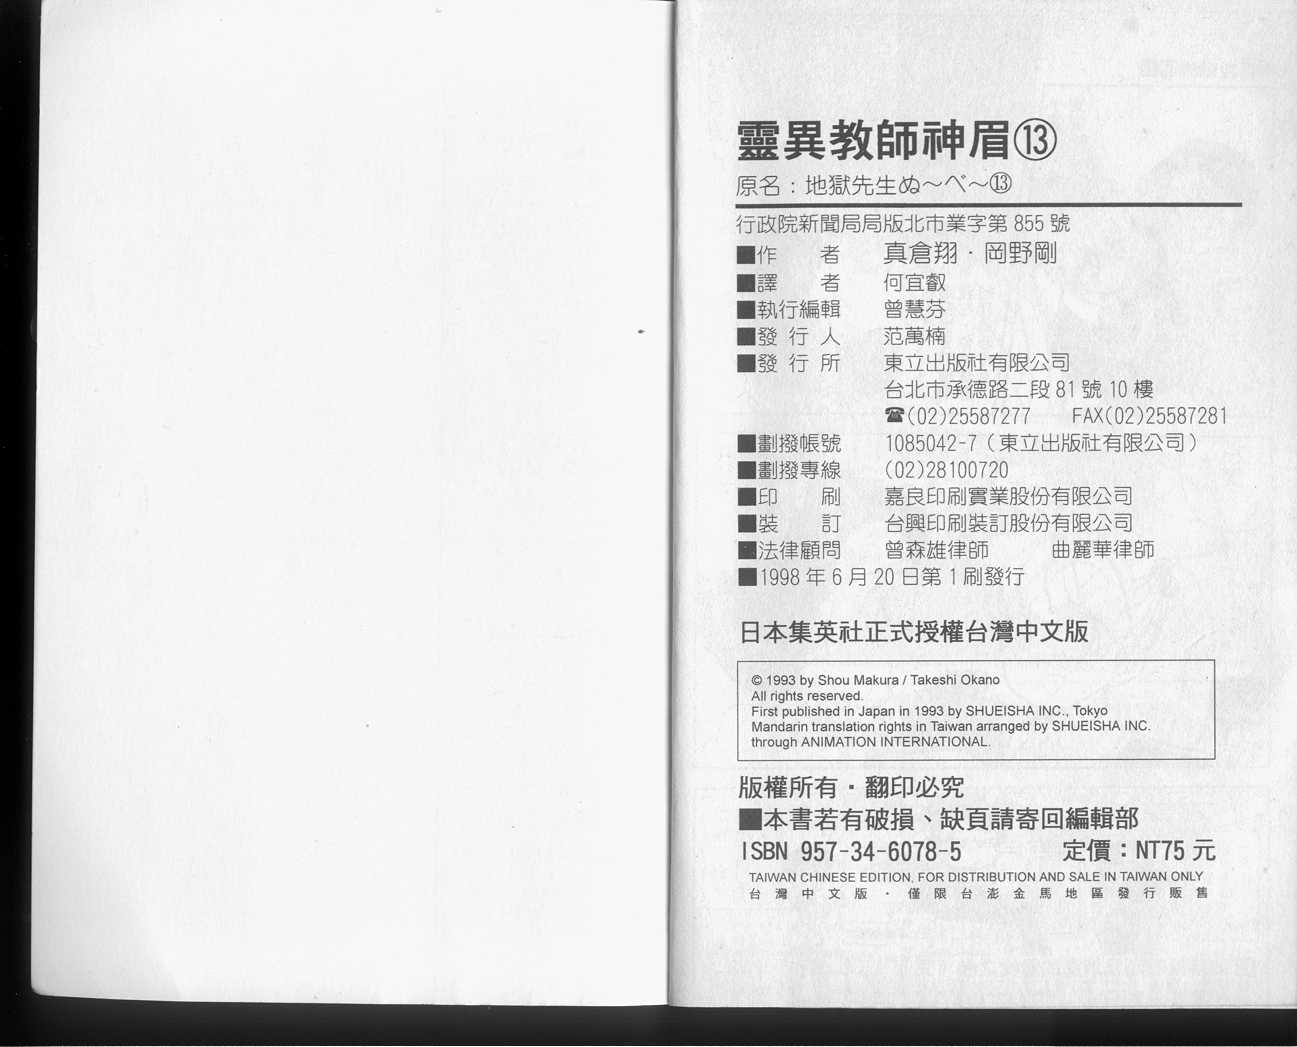 靈異教師神眉⑬
原名：地獄先生ぬ～べ～⑬
行政院新聞局局版北市業字第 855 號
■作　　者　真倉翔・岡野剛
■譯　　者　何宜叡
■執行編輯　曾慧芬
■發 行 人　范萬楠
■發 行 所　東立出版社有限公司
台北市承德路二段 81 號 10 樓
☎(02)25587277　FAX(02)25587281
■劃撥帳號　1085042-7（東立出版社有限公司）
■劃撥專線　(02)28100720
■印　　刷　嘉良印刷實業股份有限公司
■裝　　訂　台興印刷裝訂股份有限公司
■法律顧問　曾森雄律師　曲麗華律師
■1998 年 6 月 20 日第 1 刷發行
日本集英社正式授權台灣中文版
© 1993 by Shou Makura / Takeshi Okano
All rights reserved.
First published in Japan in 1993 by SHUEISHA INC., Tokyo
Mandarin translation rights in Taiwan arranged by SHUEISHA INC.
through ANIMATION INTERNATIONAL.
版權所有・翻印必究
■本書若有破損、缺頁請寄回編輯部
ISBN 957-34-6078-5　定價：NT75 元
TAIWAN CHINESE EDITION, FOR DISTRIBUTION AND SALE IN TAIWAN ONLY
台灣中文版・僅限台澎金馬地區發行販售